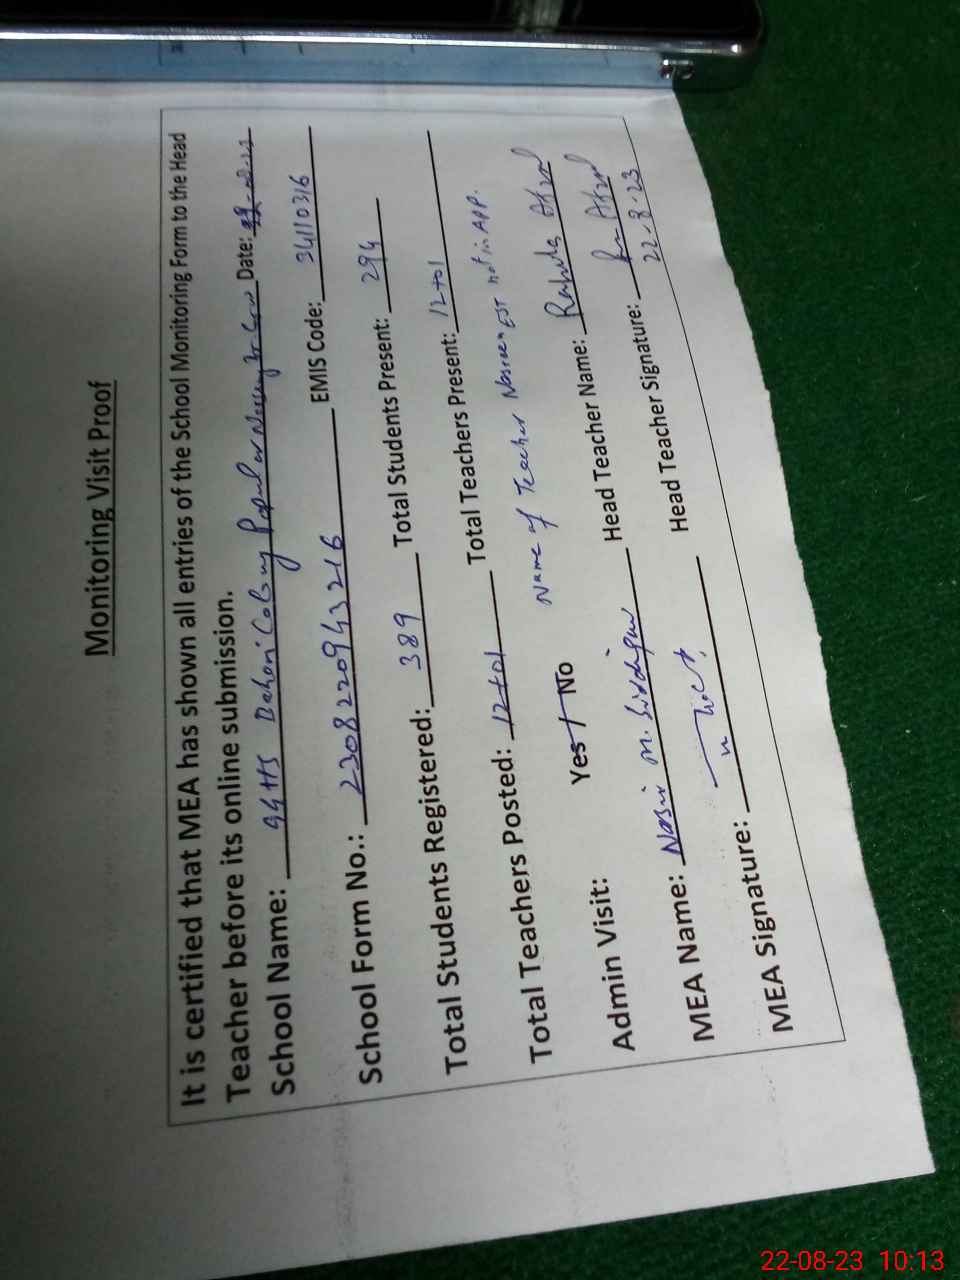 Monitoring Visit Proof
It is certified that MEA has shown all entries of the School Monitoring Form to the Head
Teacher before its online submission.
School Name: GGHS Colony Popular Nursery Date:
School Form No.: 2308220943216 EMIS Code: 34110316
Total Students Registered: 389 Total Students Present: 294
Total Teachers Posted: 12+01 Total Teachers Present: 12+01
Name of Teacher EST not in APP.
Admin Visit: Yes / No Head Teacher Name: Rahila
MEA Name: M. Head Teacher Signature:
22-8-23
MEA Signature:
22-08-23 10:13